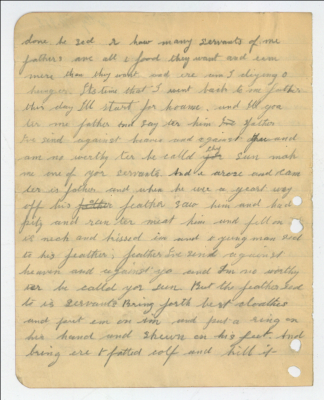 done he sed & how many servants of me
fathers avs all t food they want and even
more than they want and ere am I dieying o
hunger. Its time that I went back to me father
this day I'll start for home. und I'll goa
ter me father und say ter him I've father
I've sind against heaven und against thee and
am no worthy ter be called thy Sun mak
me one of yor servants. And e arose and cam
ter is father and when he wer a gurt way
off his feather saw him and had
pity and ran ter meat him und fell on
is neck and kissed im and e young man sed
to his feather; feather I've send against
heaven and against yo and I'm no worthy
ter be called yor sun But the feather sed
to is servants Bring forth best cloathes
and put em on im and put a ring on
her hand und Shewn on his feet. And
bring ere t fatted colf and kill it